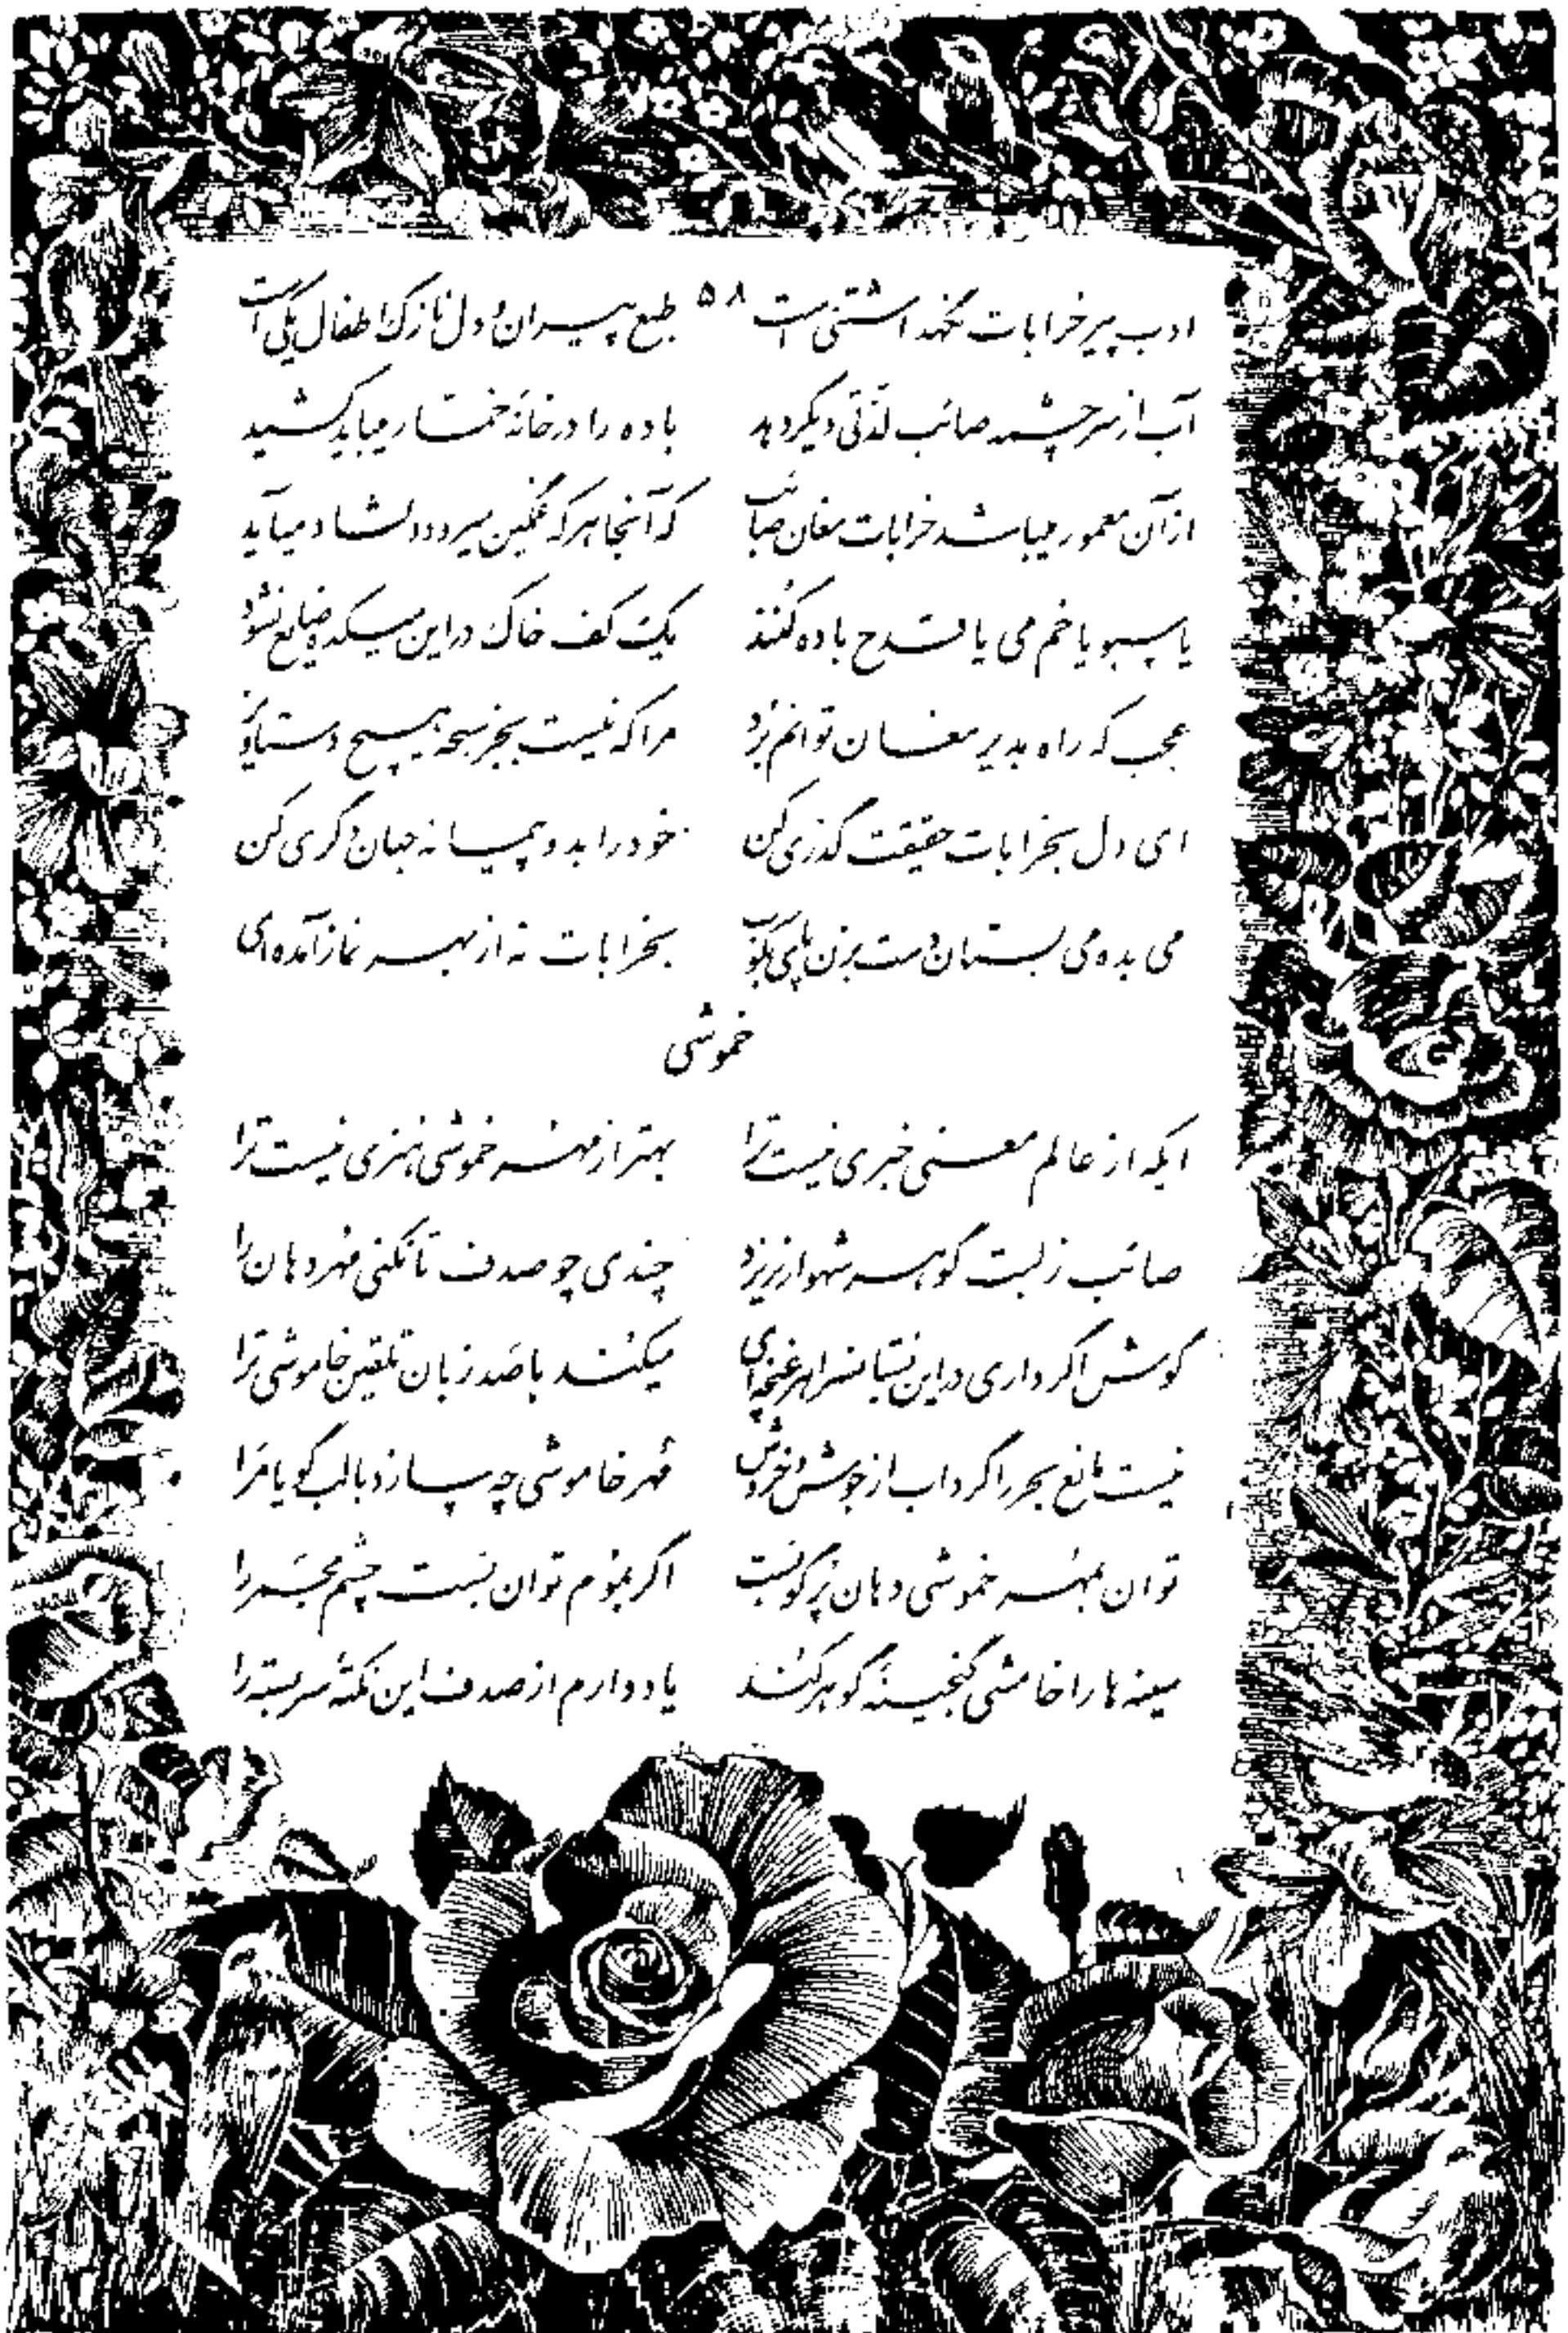 ادب پیر خرابات نگهداشتنی است ۵۸ طبع پیران و دل نازک اطفال یکی است
آب از سرچشمه صائب لذتی دیگر دهد باده را در خانهٔ خمّار میباید کشید
از آن معمور میباشد خرابات مغان صائب که آنجا هر که غمگین میرود دلشاد میآید
یا سبو یا خم می یا قدح باده کنند یک کف خاک در این میکده ضایع نشود
عجب که راه بدیر مغان توانم بُرد مرا که نیست بجز سبحه هیچ دستاویز
ای دل بخرابات حقیقت گذری کن خود را بدو پیمانه جهان دگری کن
می بده می بستان دست بزن پای بکوب بخرابات نه از بهر نماز آمده‌ای
خموشی
ایکه از عالم معنی خبری نیست ترا بهتر از مهر خموشی هنری نیست ترا
صائب ز لبت گوهر شهوار نریزد چندی چو صدف تا نکنی مُهر دهان را
گوش اگر داری در این بستانسرا هر غنچه‌ای میکُند با صَد زبان تلقین خاموشی ترا
نیست مانع بحر را گرداب از جوش و خروش مُهر خاموشی چه سازد با لب گویا مَرا
توان بمُهر خموشی دهان پُرگو بَست اگر بموم توان بَست چشم مجمَر را
سینه‌ها را خامشی گنجینهٔ گوهر کُند یاد دارم از صدف این نکتهٔ سربسته را